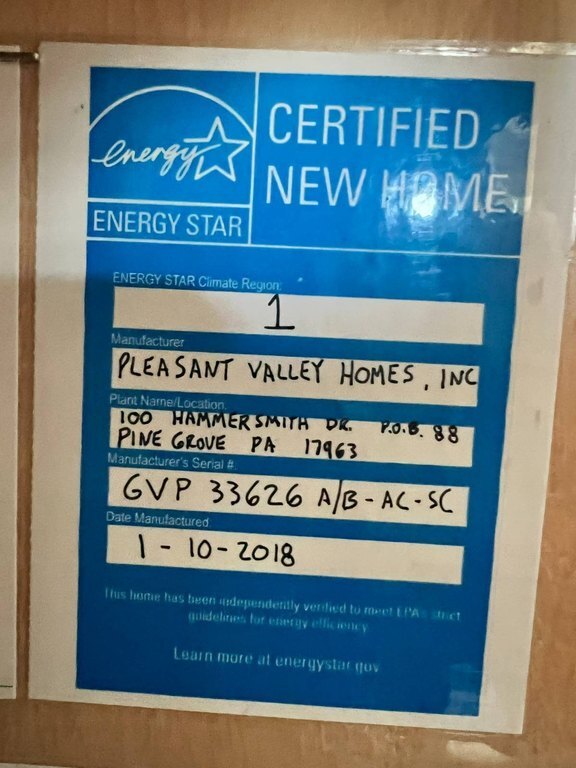 energy
ENERGY STAR
CERTIFIED
NEW HOME
ENERGY STAR Climate Region:
1
Manufacturer
PLEASANT VALLEY HOMES, INC
Plant Name/Location:
100 HAMMERSMITH DR. P.O.B. 88
PINE GROVE PA 17963
Manufacturer's Serial #:
GVP 33626 A/B-AC-SC
Date Manufactured:
1-10-2018
This home has been independently verified to meet EPA's strict
guidelines for energy efficiency
Learn more at energystar.gov